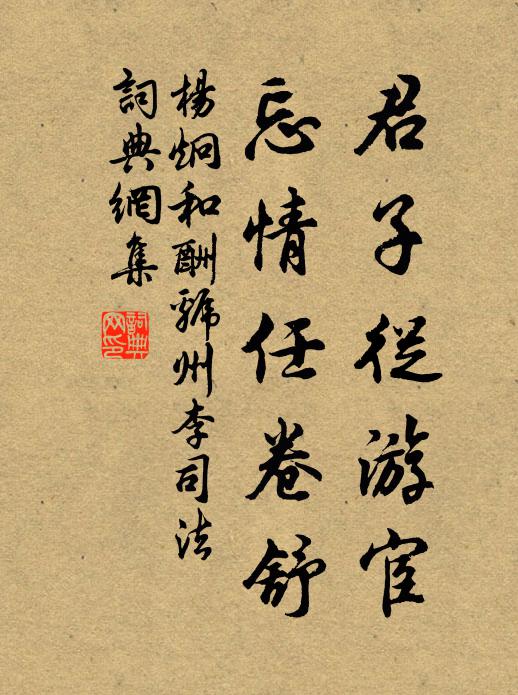 君子從游宦
忘情任卷舒
楊炯和酬虢州李司法
詞典網集
詞典網印